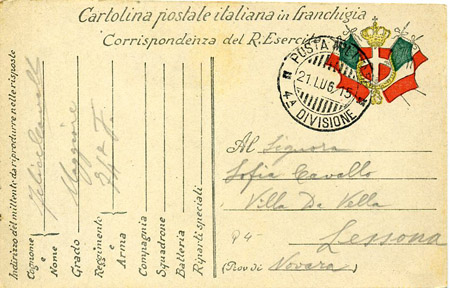 Cartolina postale italiana in franchigia
Corrispondenza del R. Esercito
POSTA
21.LUG.15
4A DIVISIONE
Indirizzo del mittente da riprodurre nelle risposte
Cognome e Nome Felice Cavallo
Grado Maggiore
Reggimento e Arma
Compagnia
Squadrone
Batteria
Riparti speciali
Al Signora
Sofia Cavallo
Villa De Vella
Lessona
(Prov di) Novara